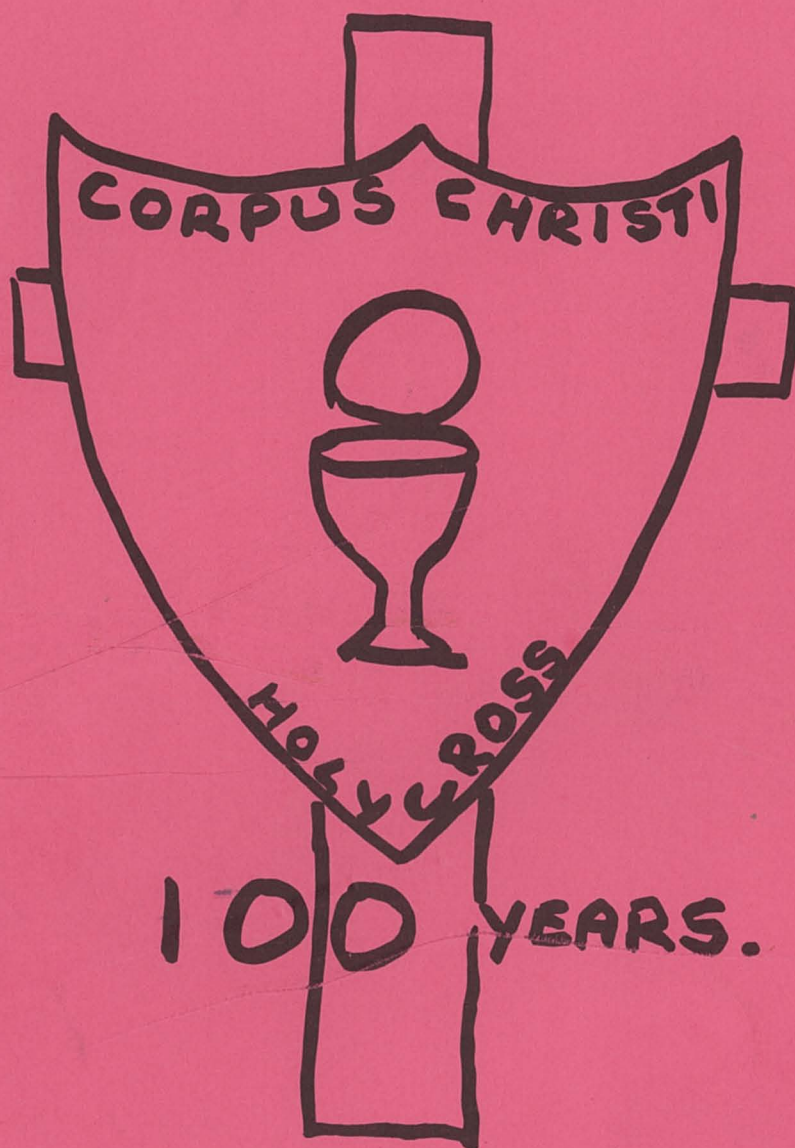 CORPUS CHRISTI
HOLY CROSS
100 YEARS.